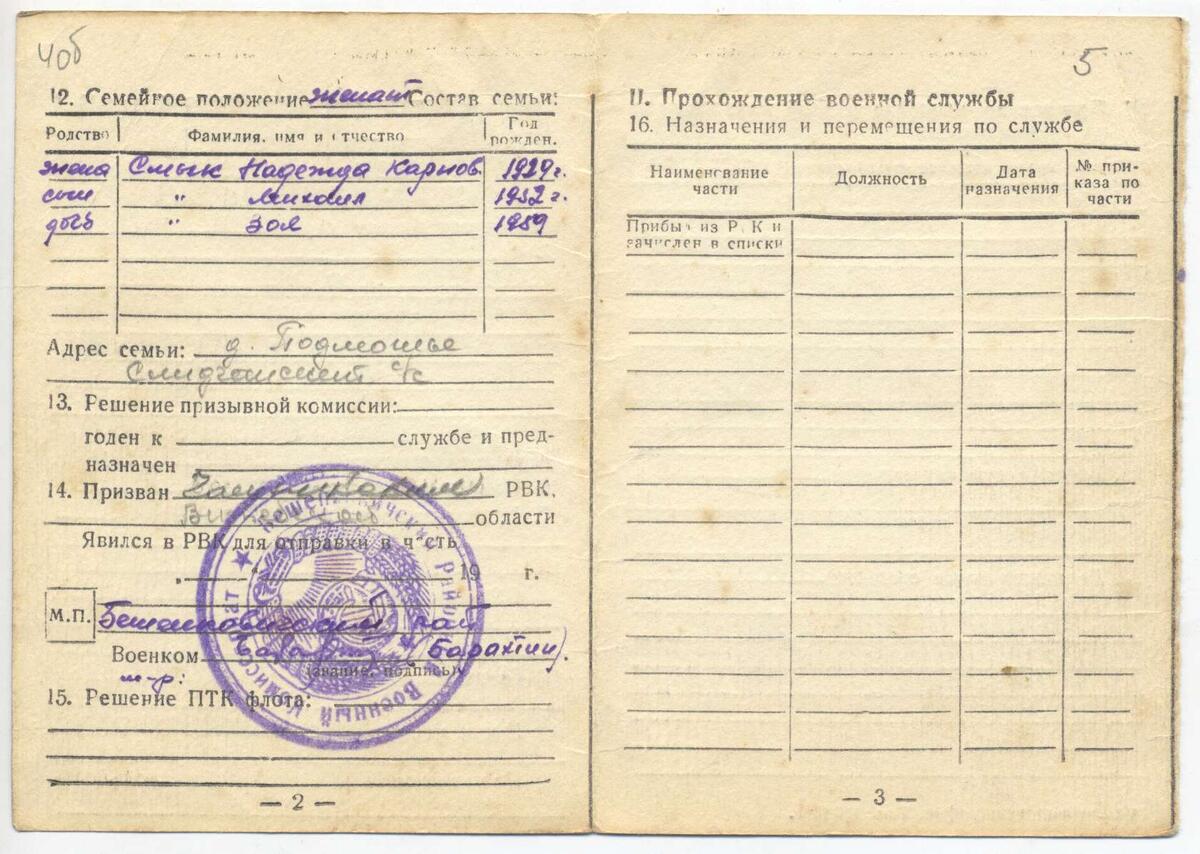 40б
12. Семейное положение женат Состав семьи:
Родство Фамилия, имя и отчество Год рожден.
жена Смык Надежда Карпов. 1929 г.
сын " Михаил 1952 г.
дочь " Зоя 1959
Адрес семьи: д. Подмошье
с/с
13. Решение призывной комиссии:
годен к службе и пред-
назначен
14. Призван РВК.
области
Явился в РВК для отправки в часть
" " 19 г.
М.П. Бешенковичский рай
Военком (Барахтин).
(звание, подпись)
м-р:
15. Решение ПТК флота:
— 2 —
Бешенковичский район
Военный Комиссариат
5
II. Прохождение военной службы
16. Назначения и перемещения по службе
Наименование части Должность Дата назначения № при-каза по части
Прибыл из РВК и
зачислен в списки
— 3 —